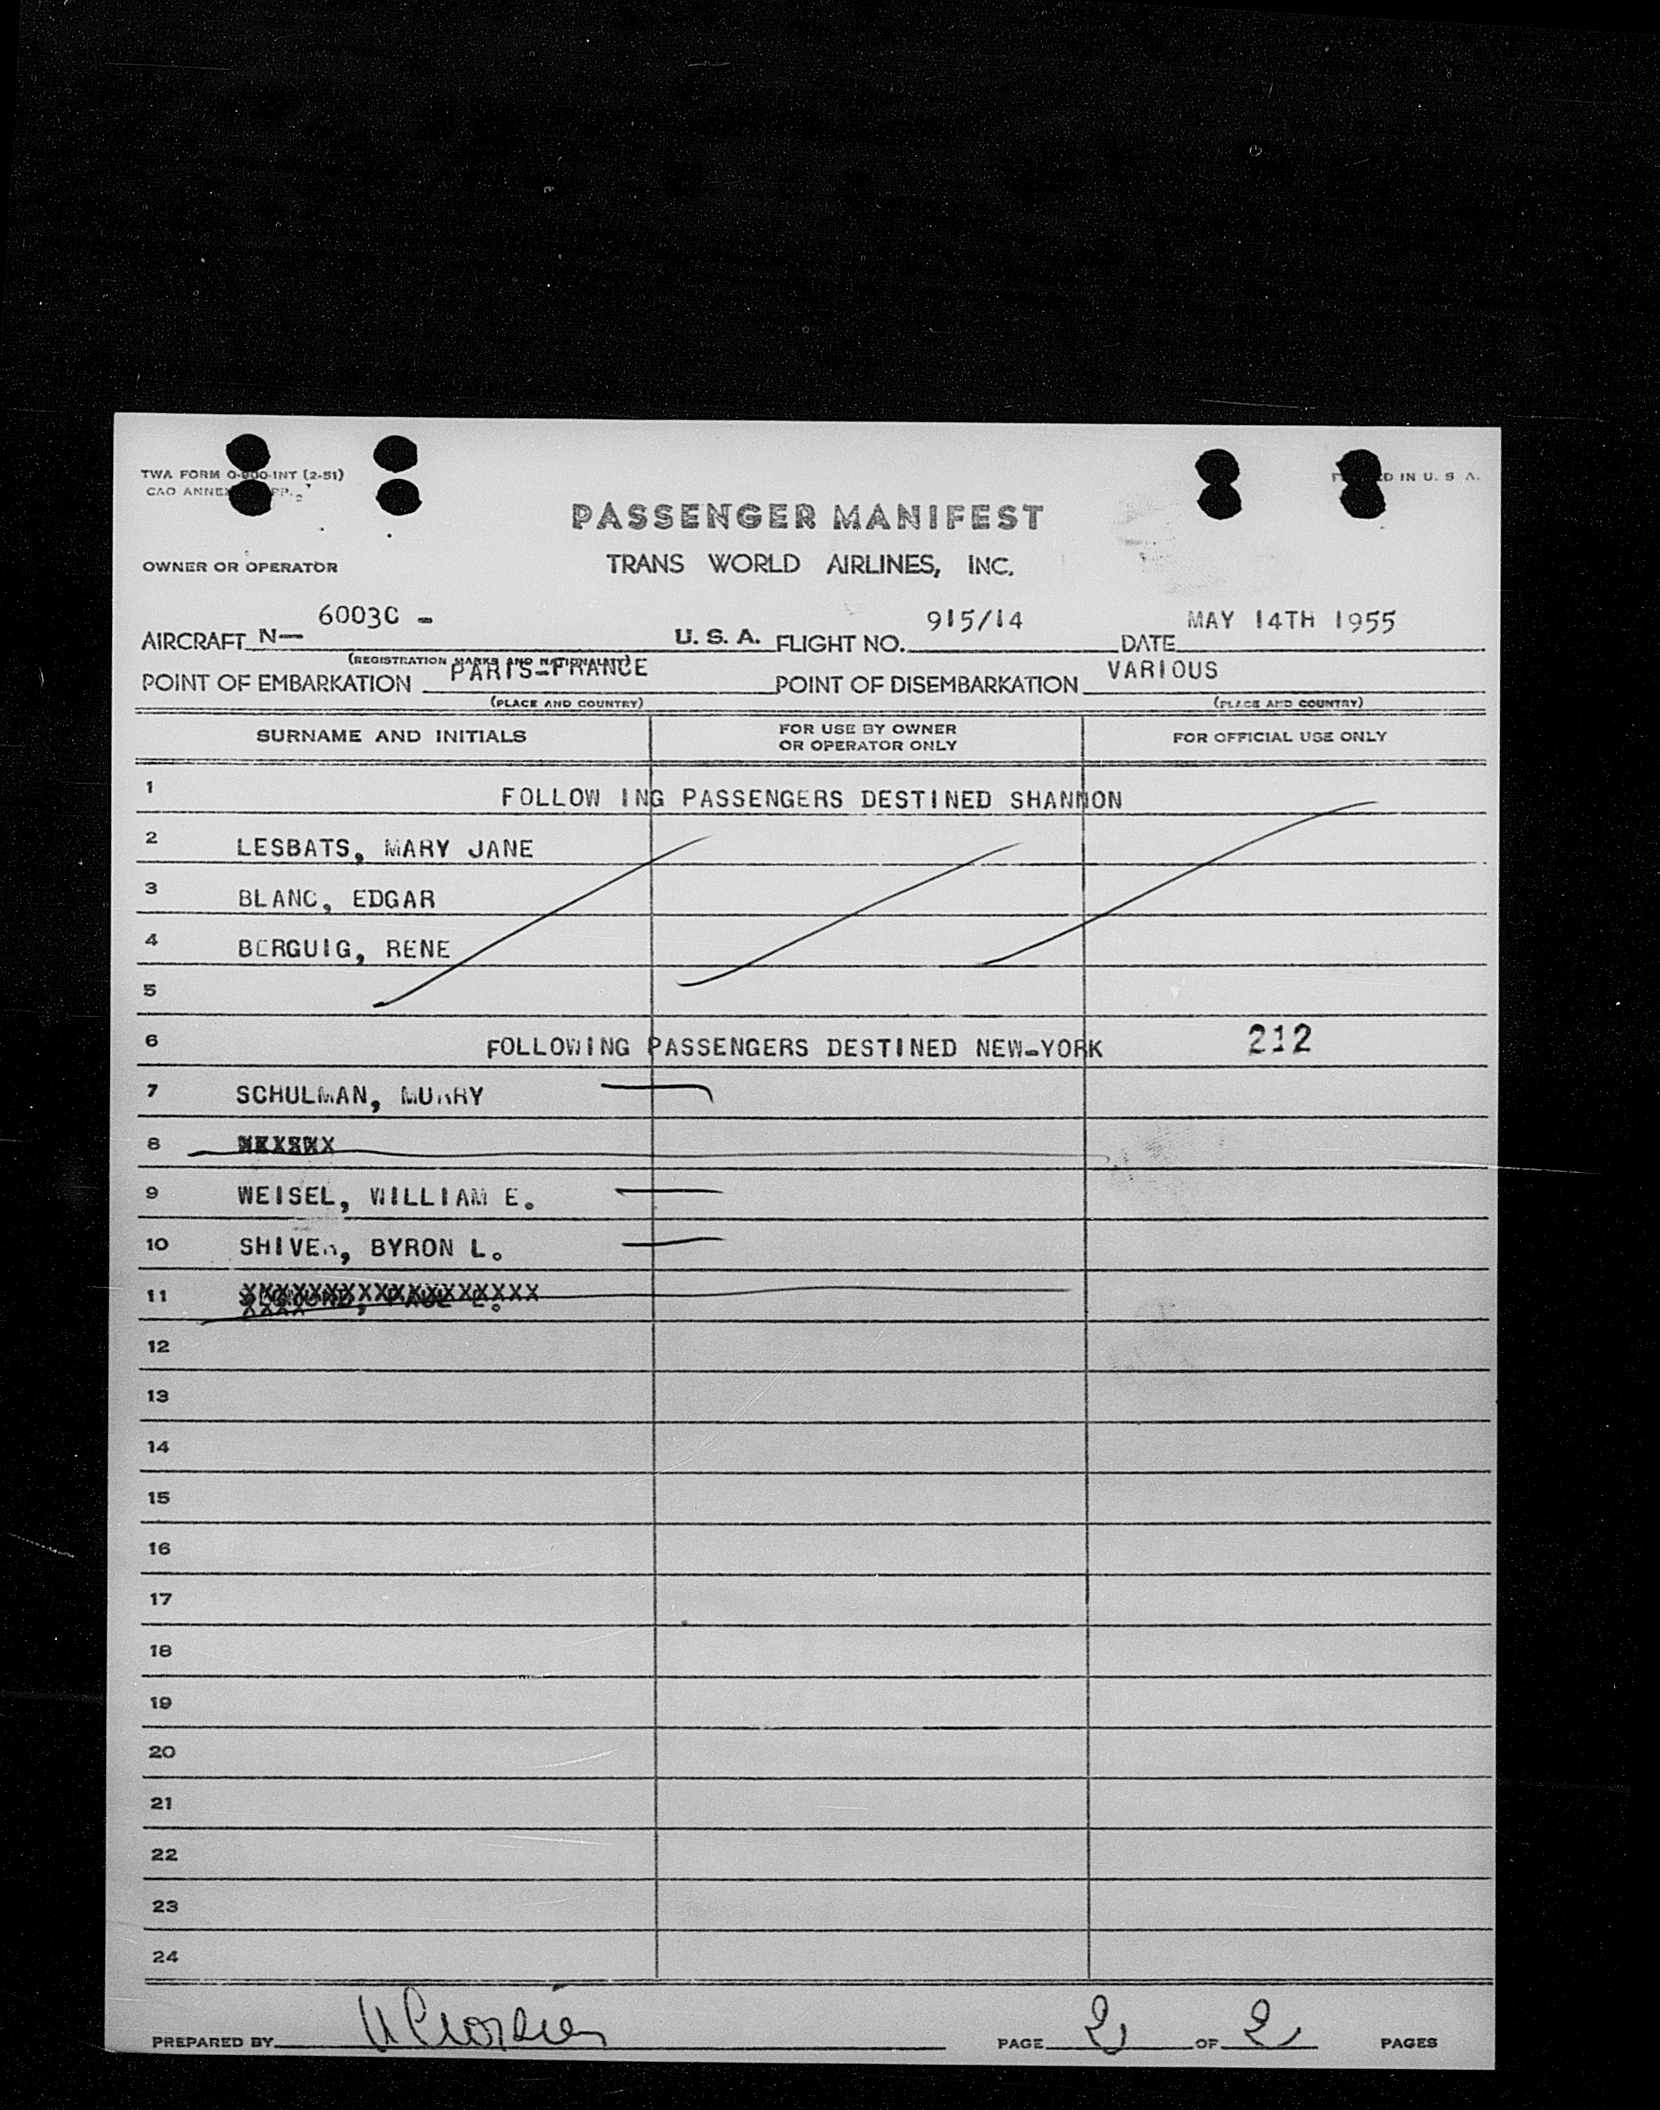 TWA FORM O-800-INT (2-51)
CAO ANNEX
IN U. S A.
PASSENGER MANIFEST
TRANS WORLD AIRLINES, INC.
OWNER OR OPERATOR
AIRCRAFT N— 6003C - U. S. A. FLIGHT NO. 915/14 DATE MAY 14TH 1955
(REGISTRATION MARKS AND NATIONALITY)
POINT OF EMBARKATION PARIS-FRANCE POINT OF DISEMBARKATION VARIOUS
(PLACE AND COUNTRY) (PLACE AND COUNTRY)
SURNAME AND INITIALS FOR USE BY OWNER OR OPERATOR ONLY FOR OFFICIAL USE ONLY
1 FOLLOW ING PASSENGERS DESTINED SHANNON
2 LESBATS, MARY JANE
3 BLANC, EDGAR
4 BERGUIG, RENE
5
6 FOLLOWING PASSENGERS DESTINED NEW-YORK 212
7 SCHULMAN, MURRY
8
9 WEISEL, WILLIAM E.
10 SHIVER, BYRON L.
11
12
13
14
15
16
17
18
19
20
21
22
23
24
PREPARED BY PAGE 2 OF 2 PAGES